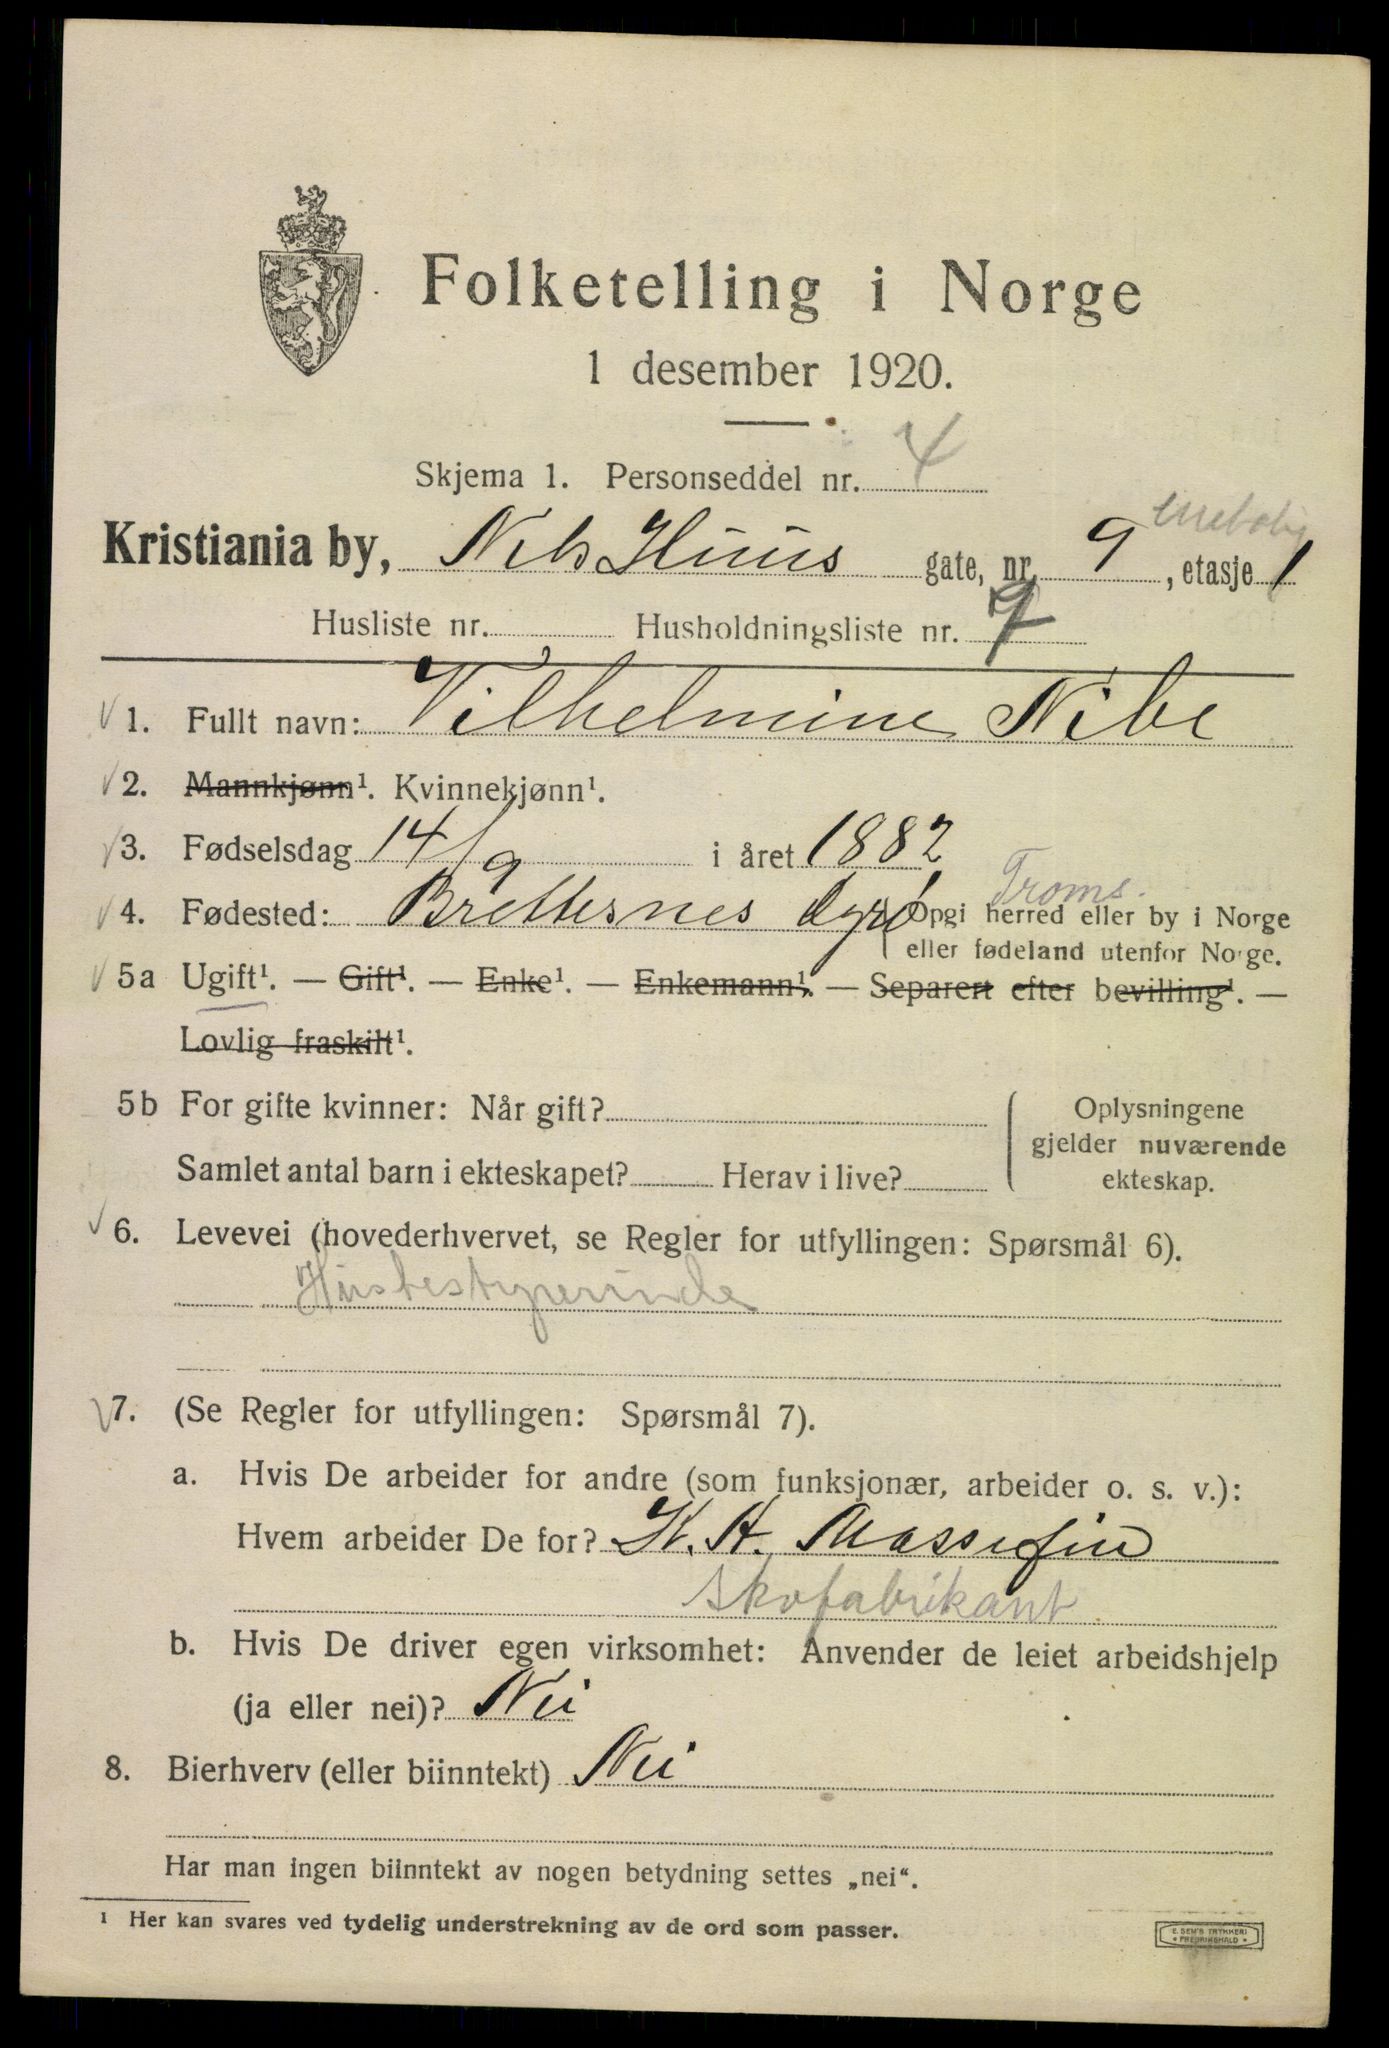 Folketelling i Norge
1 desember 1920.
Skjema 1. Personseddel nr. 4
Kristiania by, Nils Huus gate, nr. 9, etasje 1
enebolig
Husliste nr. Husholdningsliste nr. 7
1. Fullt navn: Vilhelmine Nibe
2. Mannkjønn¹. Kvinnekjønn¹.
3. Fødselsdag 14/9 i året 1882
Troms.
4. Fødested: Brettesnes Opgi herred eller by i Norge
eller fødeland utenfor Norge.
5a Ugift¹. — Gift¹. — Enke¹. — Enkemann¹. — Separert efter bevilling¹. —
Lovlig fraskilt¹.
5b For gifte kvinner: Når gift? Oplysningene
gjelder nuværende
Samlet antal barn i ekteskapet? Herav i live? ekteskap.
6. Levevei (hovederhvervet, se Regler for utfyllingen: Spørsmål 6).
Husbestyrerinde
7. (Se Regler for utfyllingen: Spørsmål 7).
a. Hvis De arbeider for andre (som funksjonær, arbeider o. s. v.):
Hvem arbeider De for? K. A.
skofabrikant
b. Hvis De driver egen virksomhet: Anvender de leiet arbeidshjelp
(ja eller nei)? Nei
8. Bierhverv (eller biinntekt) Nei
Har man ingen biinntekt av nogen betydning settes „nei“.
¹ Her kan svares ved tydelig understrekning av de ord som passer.
E. SEM'S TRYKKERI
FREDRIKSHALD